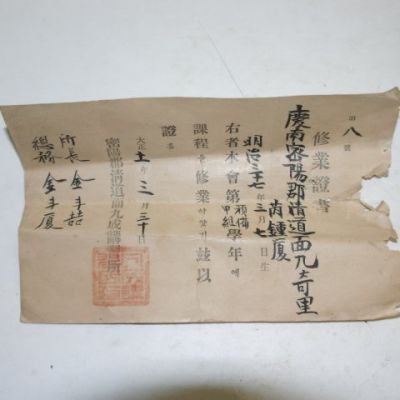 八號
修業證書
慶南密陽郡淸道面九奇里
芮鍾廈
明治三七年三月七日生
右者本會第預備甲組學年에
課程을修業하얏기玆以
證
大正十一年三月三十日
密陽郡淸道面九成講習所
所長 金斗喆
總務 金斗廈